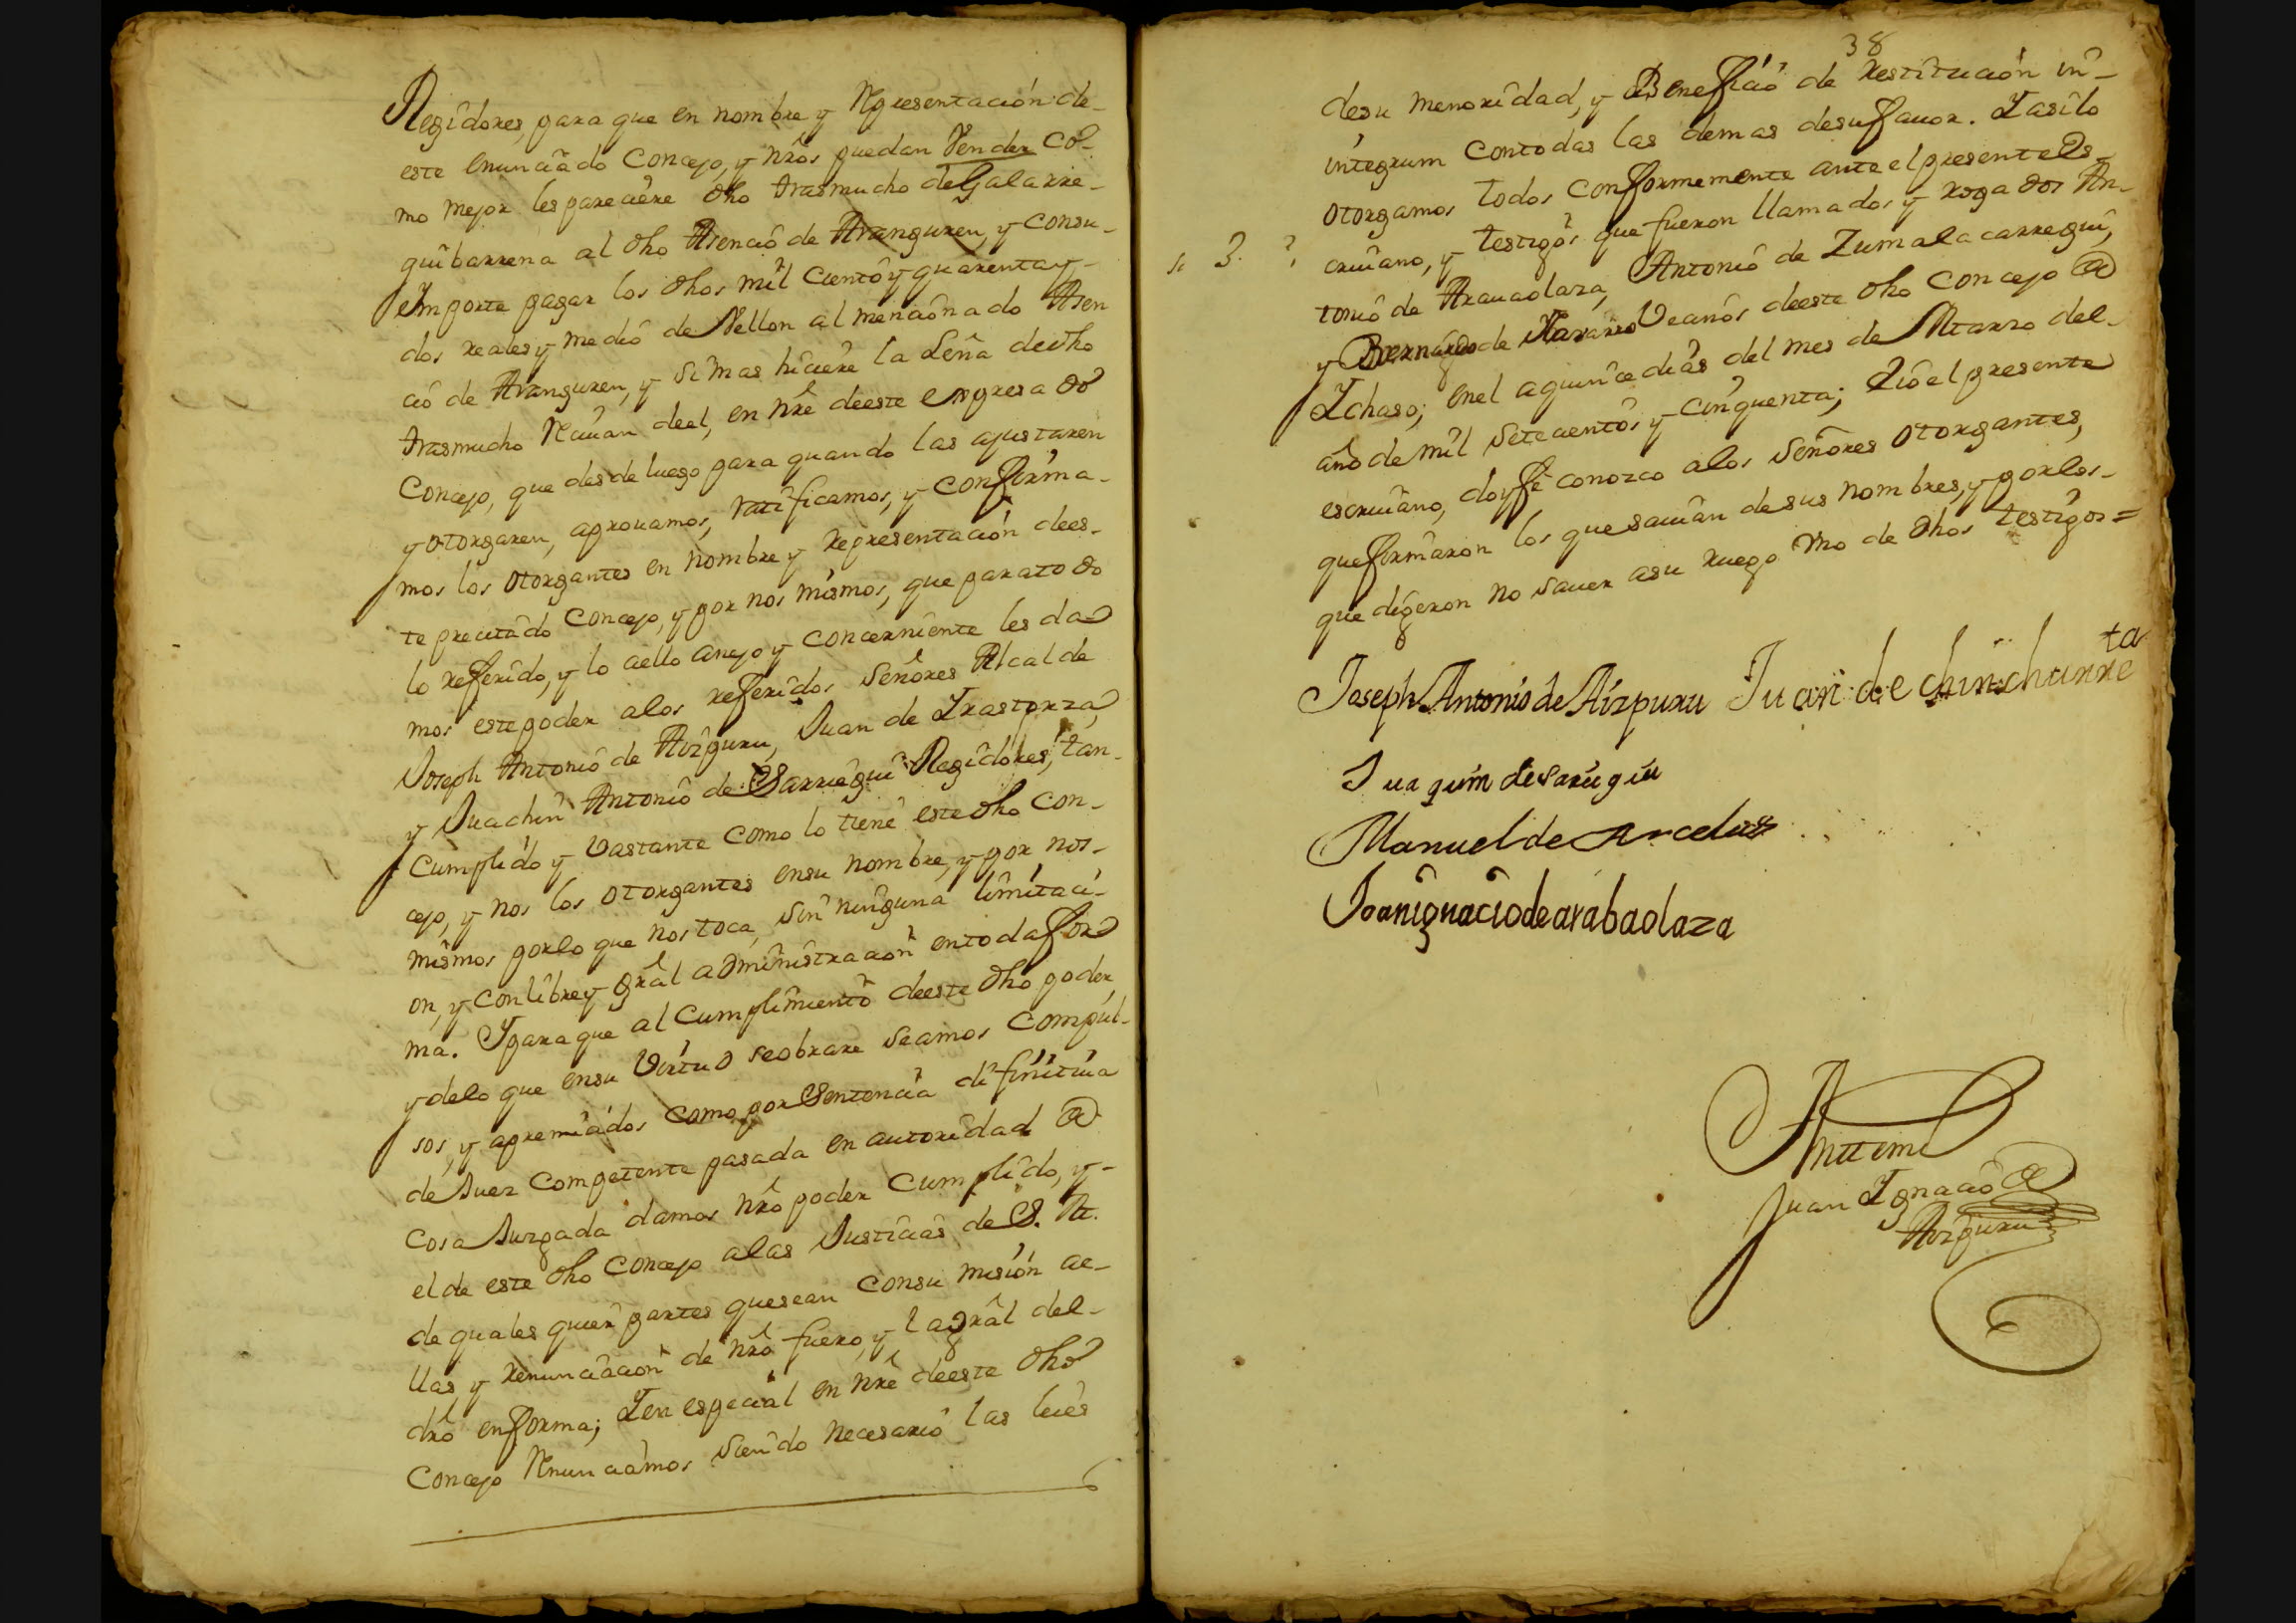 Regidores, para que en nombre y Representación de-
este enunciado Concejo, y nr̃os puedan Vender Co-
mo mejor les pareciere dho trasmucho de Galarre-
guibarrena al dho Asencio de Aranguren, y consu-
eImporte pagar los dhos mil ciento y quarenta y-
dos reales y medio de Vellon al mencionado Asen
cio de Aranguren, y si mas hiciere la Leña de dho
trasmucho Reciuan deel, en nr̃e deeste expresado
Concejo, que desde luego para quando las ajustaren
y otorgaren, aprouamos, ratificamos, y confirma-
mos los otorgantes en nombre y representación dees-
te precitado Concejo, y por nos mismos, que para todo
lo refferido, y lo aello anejo y concerniente les da
mos este poder alos refferidos Señores Alcalde
Joseph Antonio de Aizpuru, Juan de Irastorza,
y Juachin Antonio de Sarriegui Regidores, tan-
Cumplido y Vastante como lo tiene este dho Con-
cejo, y nos los otorgantes ensu nombre, y por nos-
mismos porlo que nos toca, sin ninguna limitaci-
on, y con libre y gr̃al administracion entoda for
ma. Y para que al Cumplimiento deeste dho poder,
y delo que ensu Virtud seobrare seamos Compul-
sos, y apremiados como por Sentencia difinitiua
de Juez Competente pasada en autoridad @
Cosa Juzgada damos nr̃o poder Cumplido, y-
el de este dho Concejo alas Justicias de S. M.
de quales quier partes quesean consu misión ae-
llas, y renunciacion de nr̃o fuero, y la gr̃al del-
dr̃o enforma; Y en especial en nr̃e deeste dho
Concejo Renunciamos siendo necesario las leies
38
desu menoridad, y Beneficio de Restitución in-
integrum contodas las demas desuffauor. Y asilo
otorgamos todos conformemente ante el presente Es-
criuano, y testigos que fueron llamados y rogados An-
tonio de Arauaolaza, Antonio de Zumalacarregui,
y Bernardo de Navarro Vecinos deeste dho Concejo @
Ichaso; enel aquince dias del mes de Marzo del-
año de mil setecientos y cinquenta; Eio el presente
escriuano, doyffe conozco alos Señores otorgantes,
que firmaron los que sauian de sus nombres, y porlos-
que digeron no sauer asu ruego Vno de dhos testigos=
Joseph Antonio de Aizpuru Juan de chinchurreta
Juaquin de sarugiu
Manuel de Arcelus
Joan ignacio de arabaolaza
Antemi
Juan Ignacio @
Aizpuru